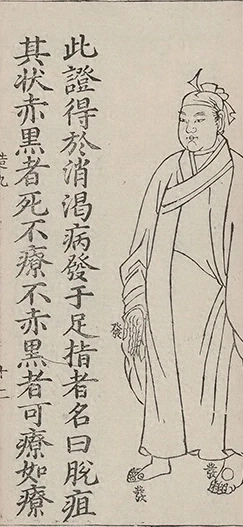 發
發
發
此證得於消渴病發于足指者名曰脫疽
其状赤黑者死不療不赤黑者可療如療
十二